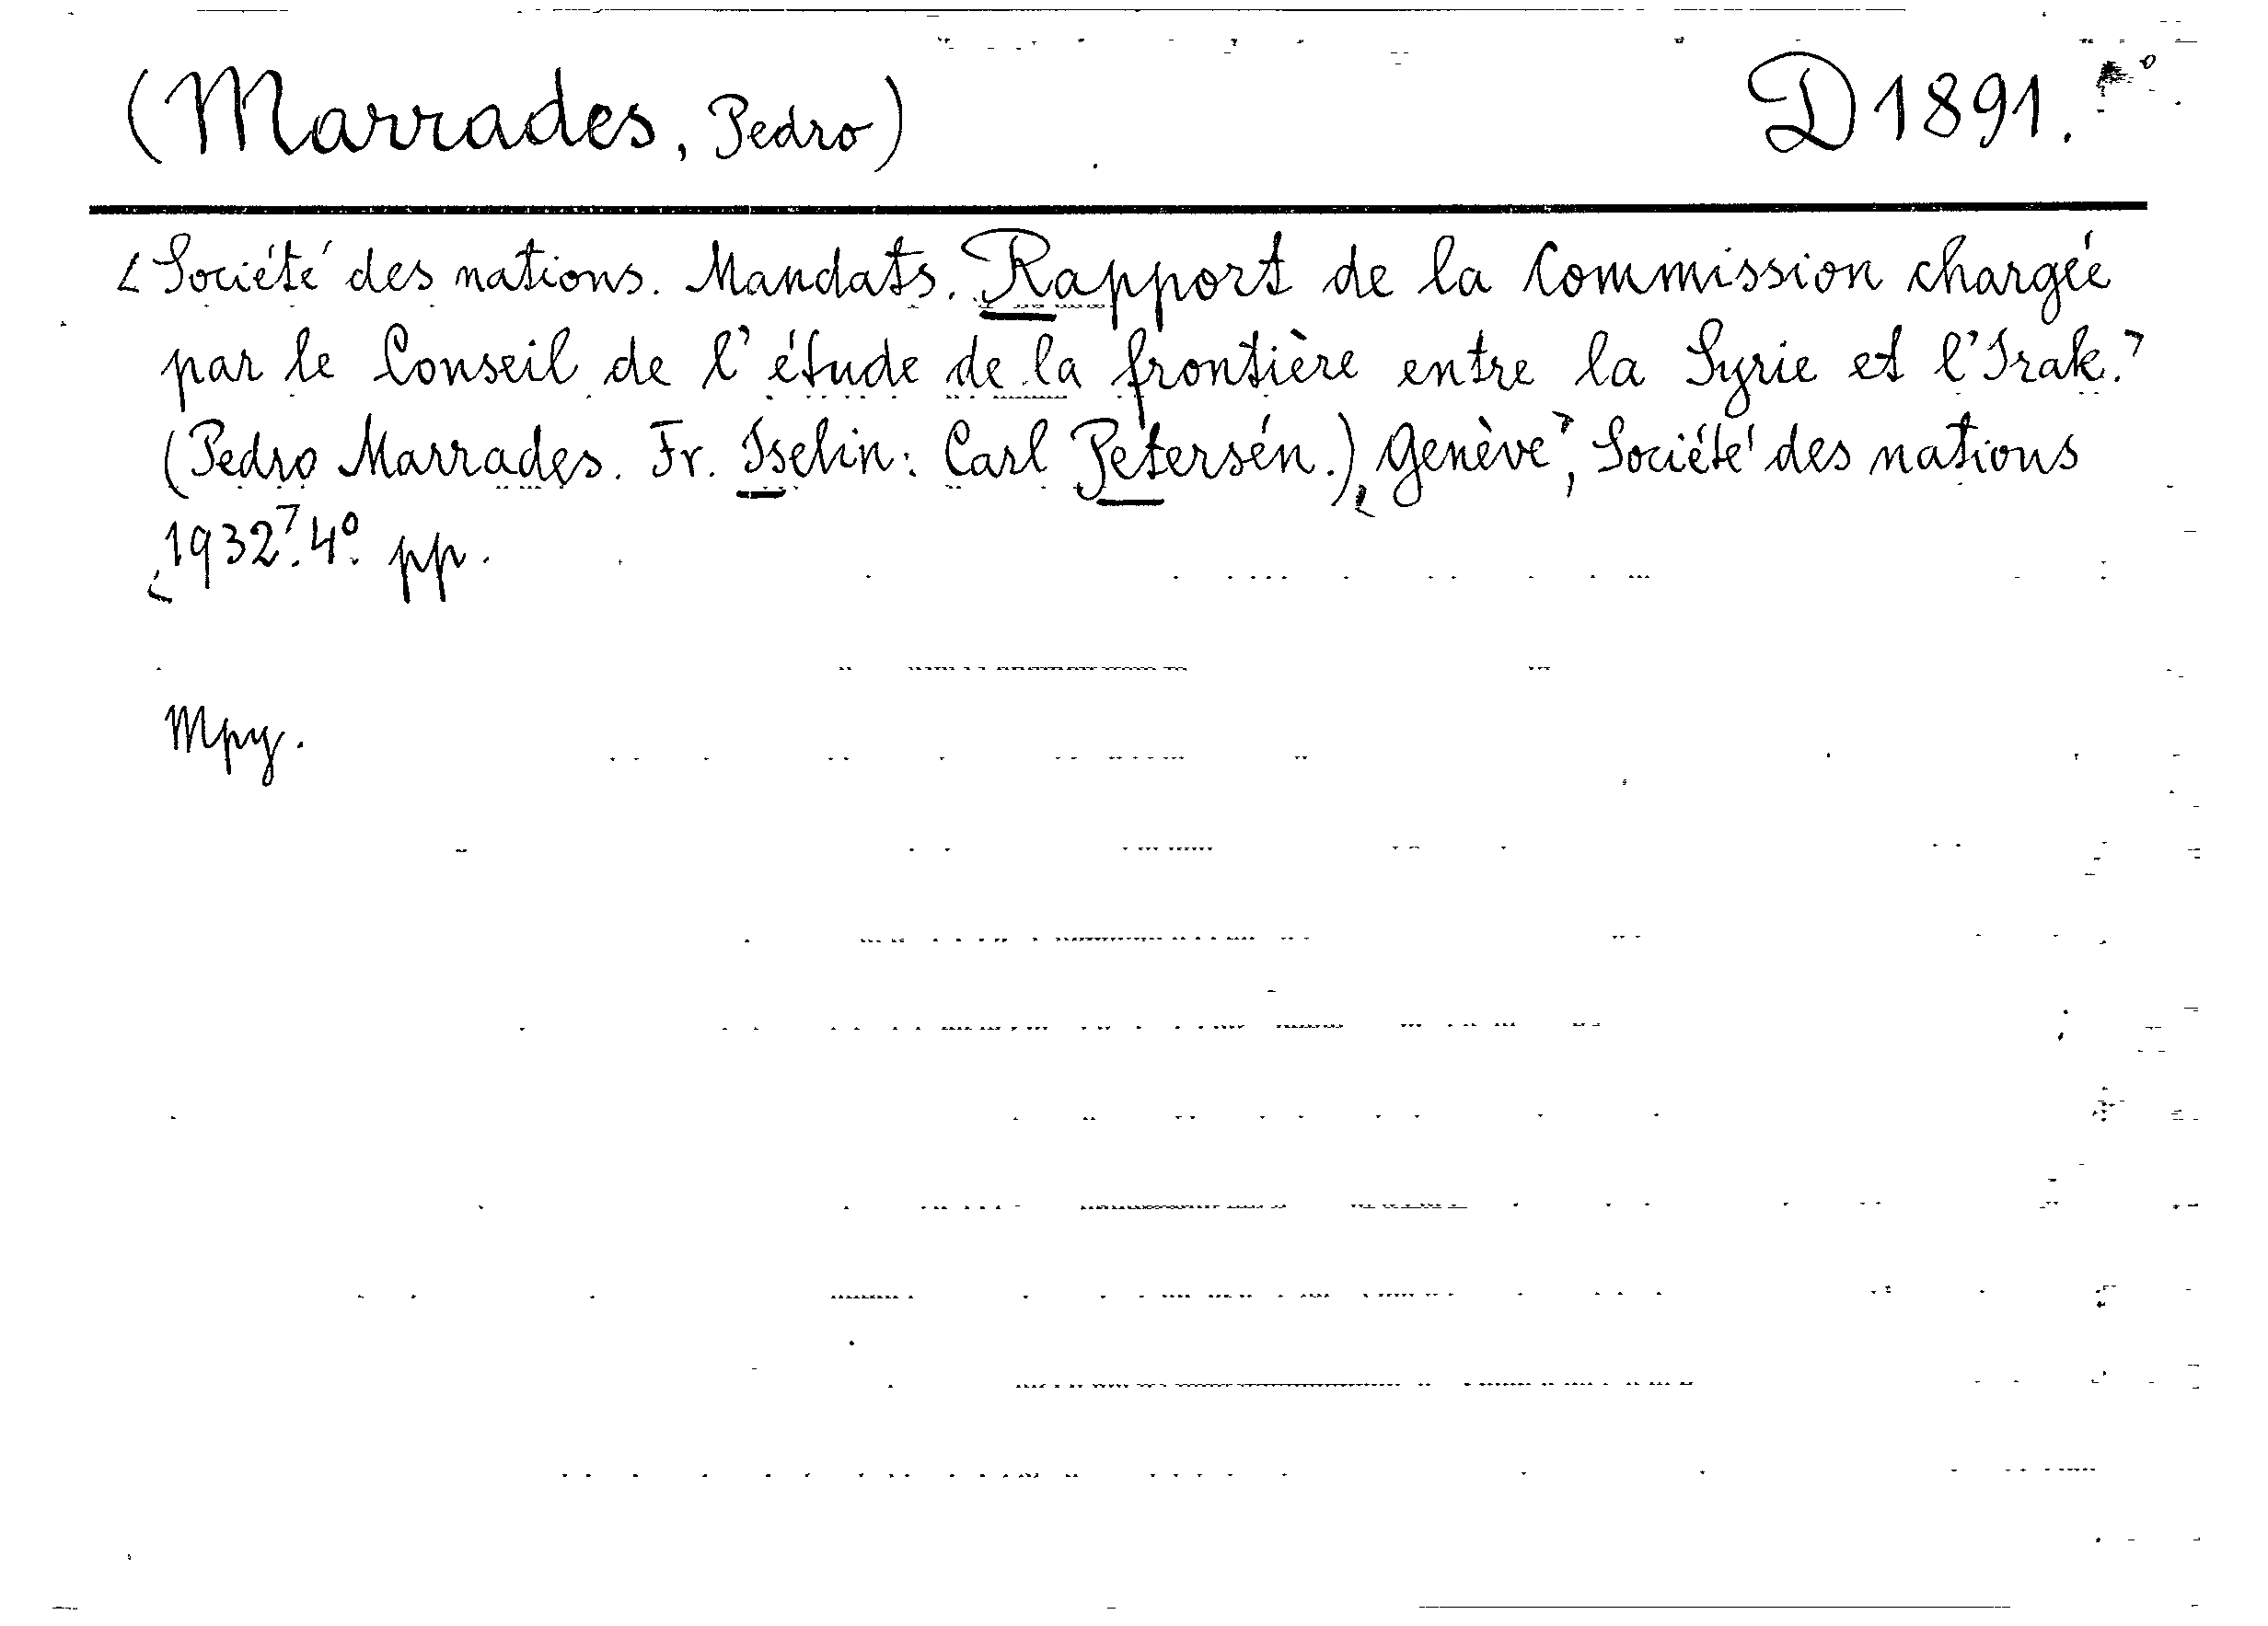 (Marrades, Pedro) D1891.
<Société des nations. Mandats. Rapport de la Commission chargée
par le Conseil de l'étude de la frontière entre la Syrie et l'Irak.>
(Pedro Marrades. Fr. Iselin: Carl Petersén.) <Genève>, Société des nations
<1932>. 4º. pp.
Mpy.